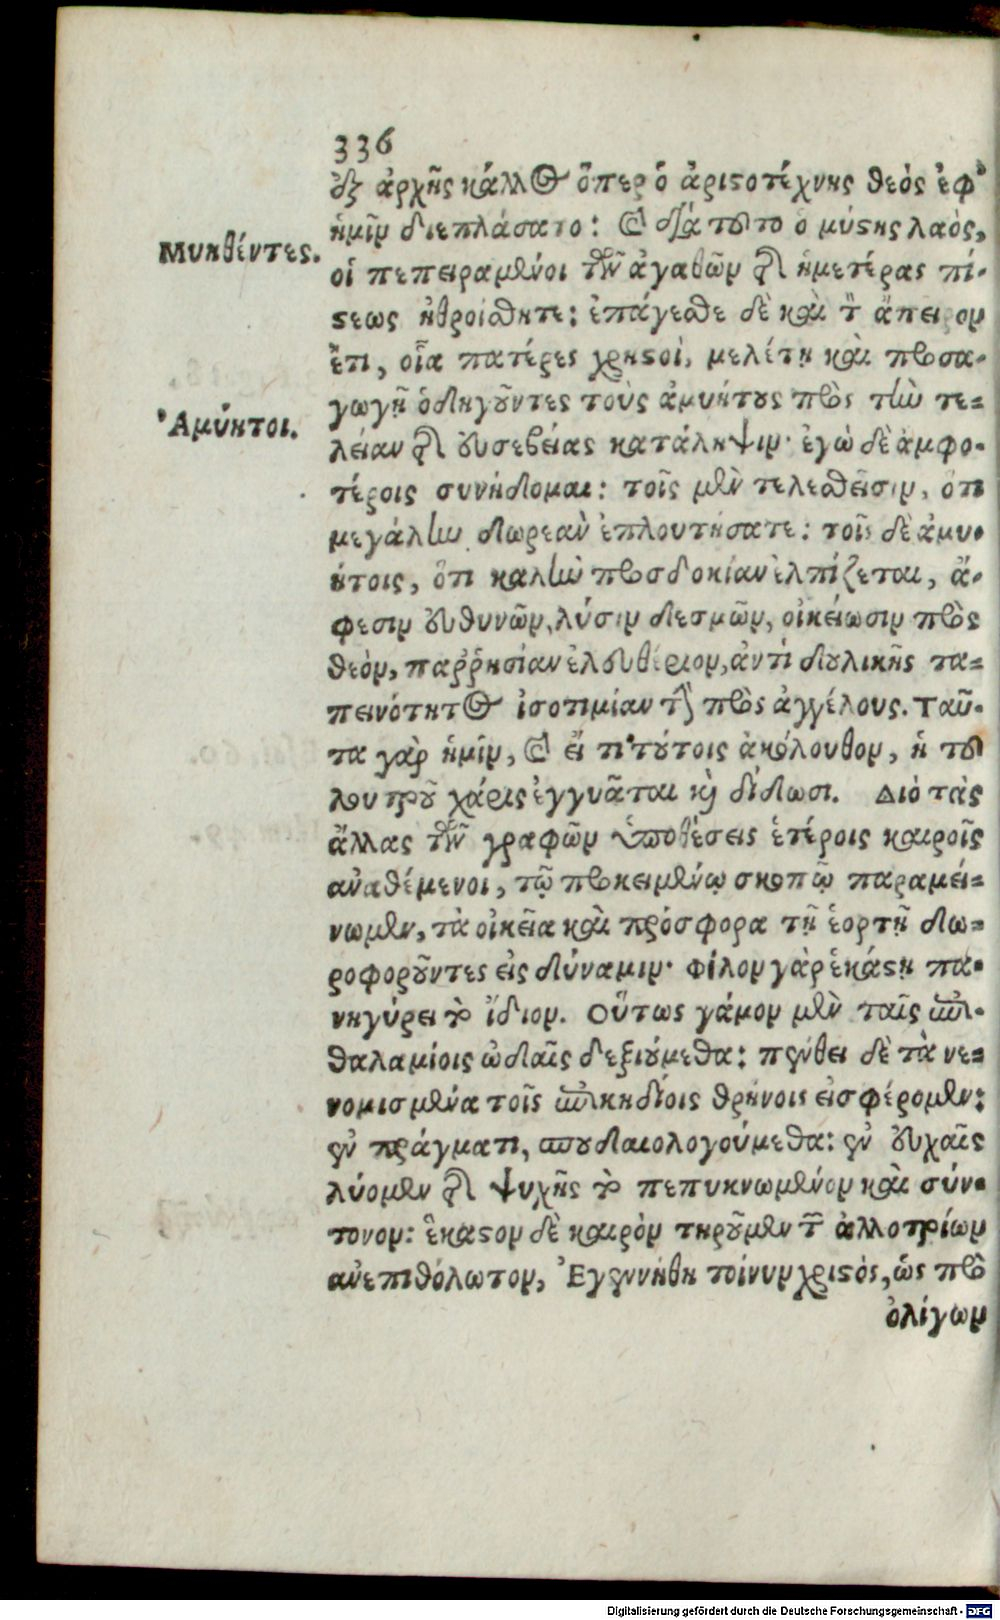 336
ἐξ ἀρχῆς κάλλος ὅπερ ὁ ἀριστοτέχνης θεὸς ἐφ'
ἡμῖν διεπλάσατο: καὶ διὰ τοῦτο ὁ μύστης λαὸς,
Μυηθέντες.
οἱ πεπειραμένοι τῶν ἀγαθῶν τῆς ἡμετέρας πί-
στεως ἠθροίσθητε: ἐπάγεσθε δὲ καὶ τὸν ἄπειρον
ἔτι, οἷα πατέρες χρηστοὶ, μελέτῃ καὶ προσα-
γωγῇ ὁδηγοῦντες τοὺς ἀμυήτους πρὸς τὴν τε-
Ἀμύητοι.
λείαν τῆς εὐσεβείας κατάληψιν· ἐγὼ δὲ ἀμφο-
τέροις συνήδομαι: τοῖς μὲν τελεσθεῖσιν, ὅτι
μεγάλην δωρεὰν ἐπλουτήσατε: τοῖς δὲ ἀμυ-
ήτοις, ὅτι καλὴν προσδοκίαν ἐλπίζεται, ἄ-
φεσιν εὐθυνῶν, λύσιν δεσμῶν, οἰκείωσιν πρὸς
θεόν, παῤῥησίαν ἐλευθέριον, ἀντὶ δουλικῆς τα-
πεινότητος ἰσοτιμίαν τὴν πρὸς ἀγγέλους. Ταῦ-
τα γὰρ ἡμῖν, καὶ εἴ τι τούτοις ἀκόλουθον, ἡ τοῦ
λουτροῦ χάρις ἐγγυᾶται καὶ δίδωσι. Διὸ τὰς
ἄλλας τῶν γραφῶν ὑποθέσεις ἑτέροις καιροῖς
ἀναθέμενοι, τῷ προκειμένῳ σκοπῷ παραμεί-
νωμεν, τὰ οἰκεῖα καὶ πρόσφορα τῇ ἑορτῇ δω-
ροφοροῦντες εἰς δύναμιν· φίλον γὰρ ἑκάστῃ πα-
νηγύρει τὸ ἴδιον. Οὕτως γάμον μὲν ταῖς ἐπι-
θαλαμίοις ᾠδαῖς δεξιούμεθα: πένθει δὲ τὰ νε-
νομισμένα τοῖς ἐπικηδίοις θρήνοις εἰσφέρομεν:
ἐν πράγματι, σπουδαιολογούμεθα: ἐν εὐχαῖς
λύομεν τῆς ψυχῆς τὸ πεπυκνωμένον καὶ σύν-
τονον: ἕκαστον δὲ καιρὸν τηροῦμεν τῶν ἀλλοτρίων
ἀνεπιθόλωτον, Ἐγεννήθη τοίνυν χριστός, ὡς πρὸ
ὀλίγων
Digitalisierung gefördert durch die Deutsche Forschungsgemeinschaft - DFG